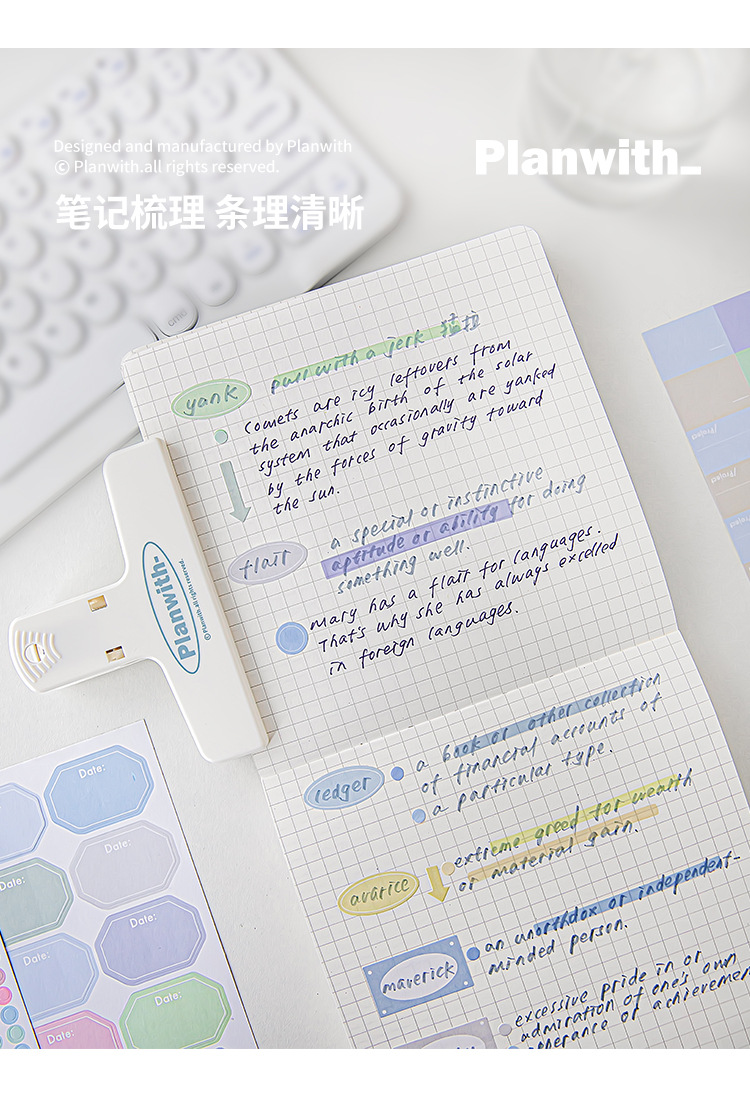 Designed and manufactured by Planwith
© Planwith.all rights reserved.
Planwith_
笔记梳理 条理清晰
pull with a jerk 猛拉
yank
Comets are icy leftovers from
the anarchic birth of the solar
system that occasionally are yanked
by the forces of gravity toward
the sun.
a special or instinctive
flair
aptitude or ability for doing
something well.
Mary has a flair for languages.
That's why she has always excelled
in foreign languages.
Planwith-
© Planwith.all rights reserved.
a book or other collection
ledger
of financial accounts of
a particular type.
extreme greed for wealth
avarice
or material gain.
an unorthdox or independent-
maverick
minded person.
excessive pride in or
admiration of one's own
or achievemen
Date:
Date:
Date:
Date:
Date:
Date:
Date:
Project
Project
Project